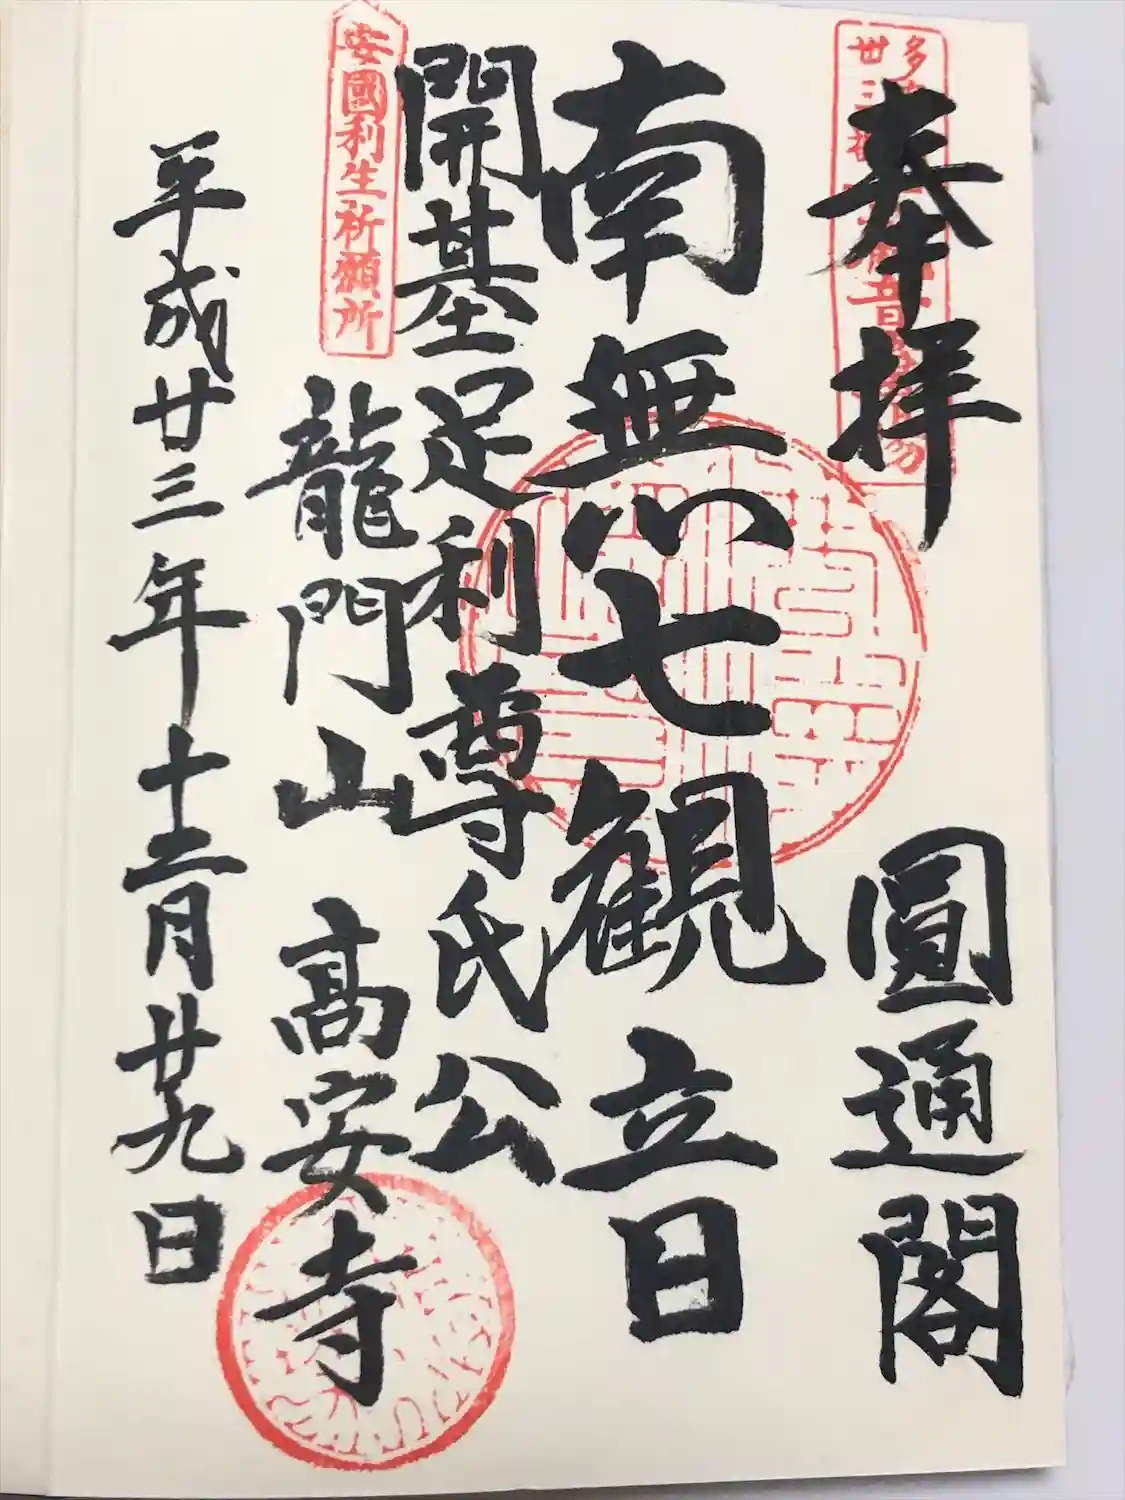 奉拝 圓通閣
南無七観音
開基足利尊氏公
安國利生祈願所
龍門山 高安寺
平成廿三年十二月廿九日